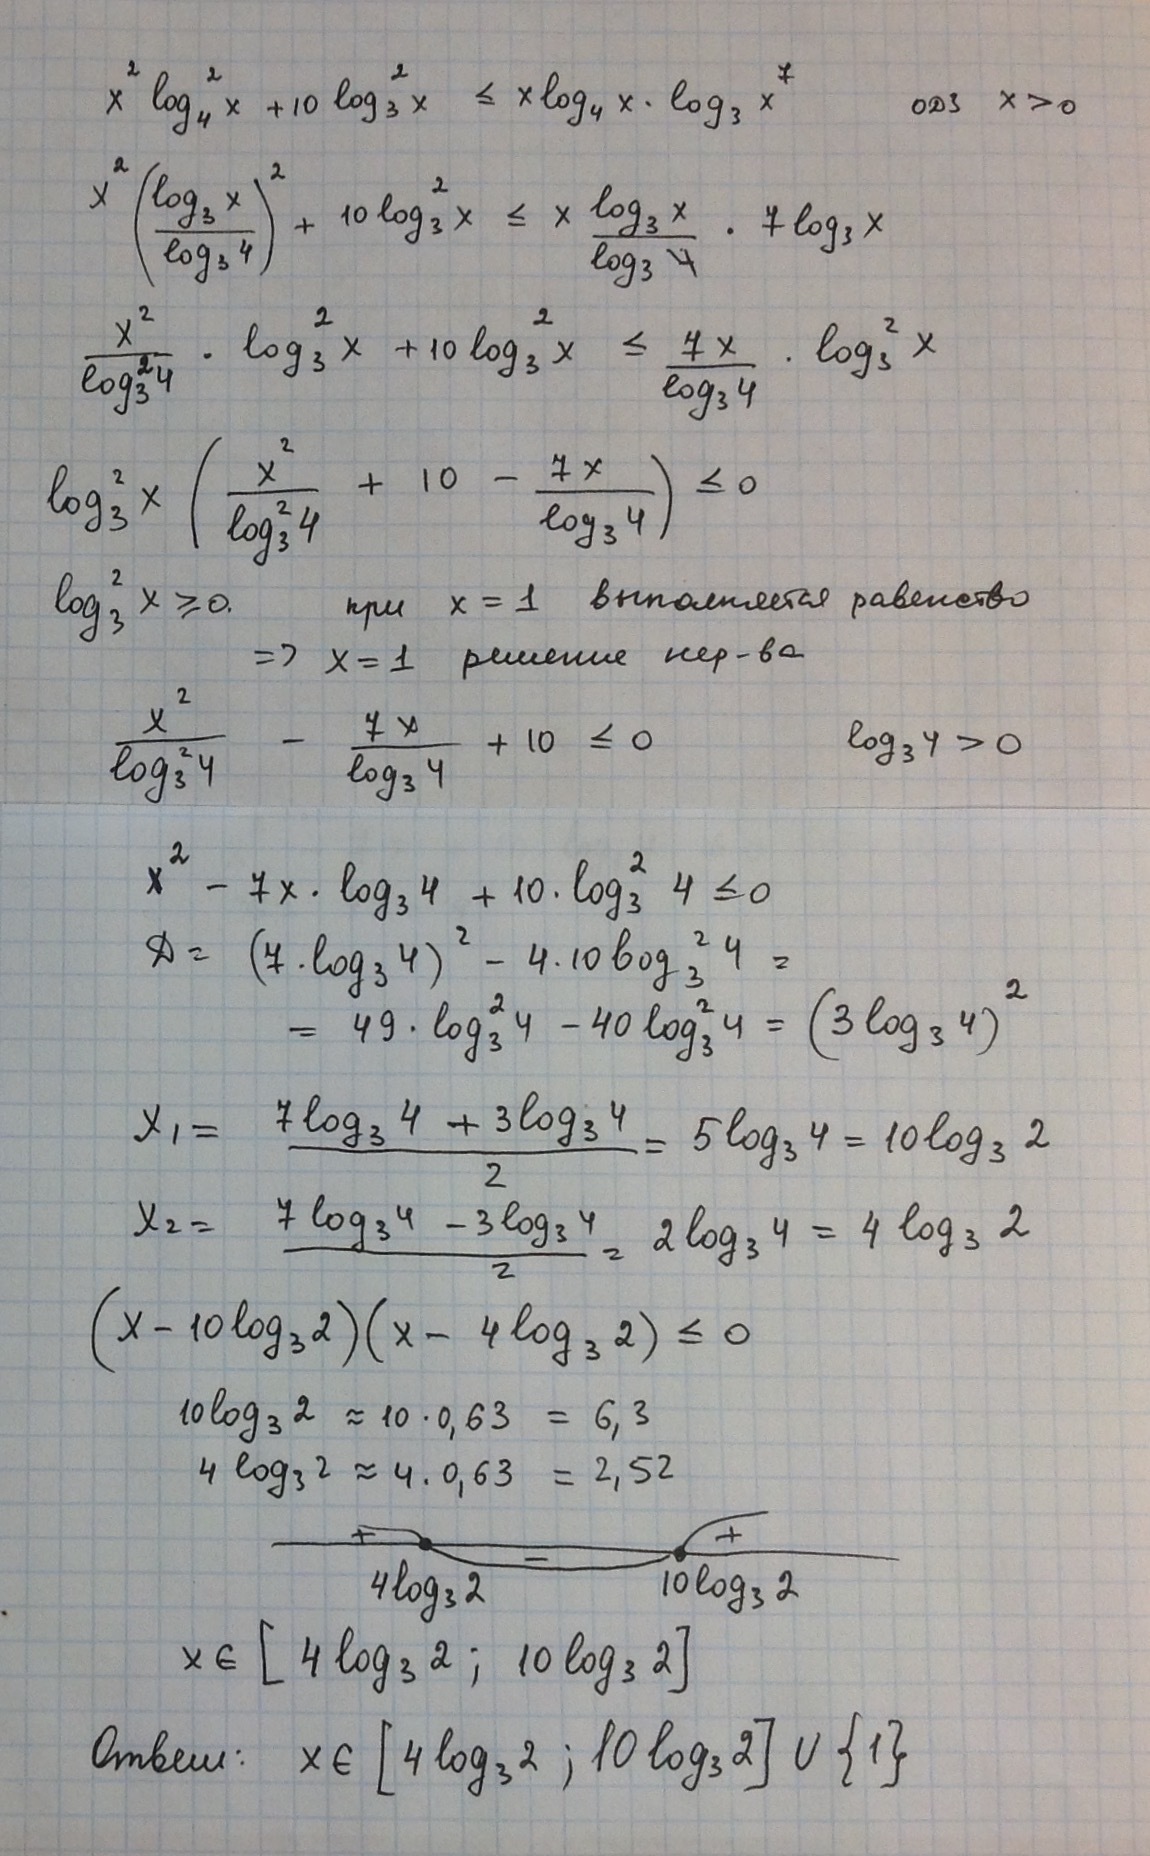 x² log₄² x + 10 log₃² x ≤ x log₄ x · log₃ x⁷ ОДЗ x > 0
x² (log₃ x / log₃ 4)² + 10 log₃² x ≤ x log₃ x / log₃ 4 · 7 log₃ x
x² / log₃² 4 · log₃² x + 10 log₃² x ≤ 7x / log₃ 4 · log₃² x
log₃² x (x² / log₃² 4 + 10 − 7x / log₃ 4) ≤ 0
log₃² x ≥ 0. при x = 1 выполняется равенство
=> x = 1 решение нер-ва
x² / log₃² 4 − 7x / log₃ 4 + 10 ≤ 0 log₃ 4 > 0
x² − 7x · log₃ 4 + 10 · log₃² 4 ≤ 0
D = (7 · log₃ 4)² − 4 · 10 log₃² 4 =
= 49 · log₃² 4 − 40 log₃² 4 = (3 log₃ 4)²
x₁ = (7 log₃ 4 + 3 log₃ 4) / 2 = 5 log₃ 4 = 10 log₃ 2
x₂ = (7 log₃ 4 − 3 log₃ 4) / 2 = 2 log₃ 4 = 4 log₃ 2
(x − 10 log₃ 2)(x − 4 log₃ 2) ≤ 0
10 log₃ 2 ≈ 10 · 0,63 = 6,3
4 log₃ 2 ≈ 4 · 0,63 = 2,52
+ − +
4 log₃ 2 10 log₃ 2
x ∈ [4 log₃ 2 ; 10 log₃ 2]
Ответ: x ∈ [4 log₃ 2 ; 10 log₃ 2] ∪ {1}